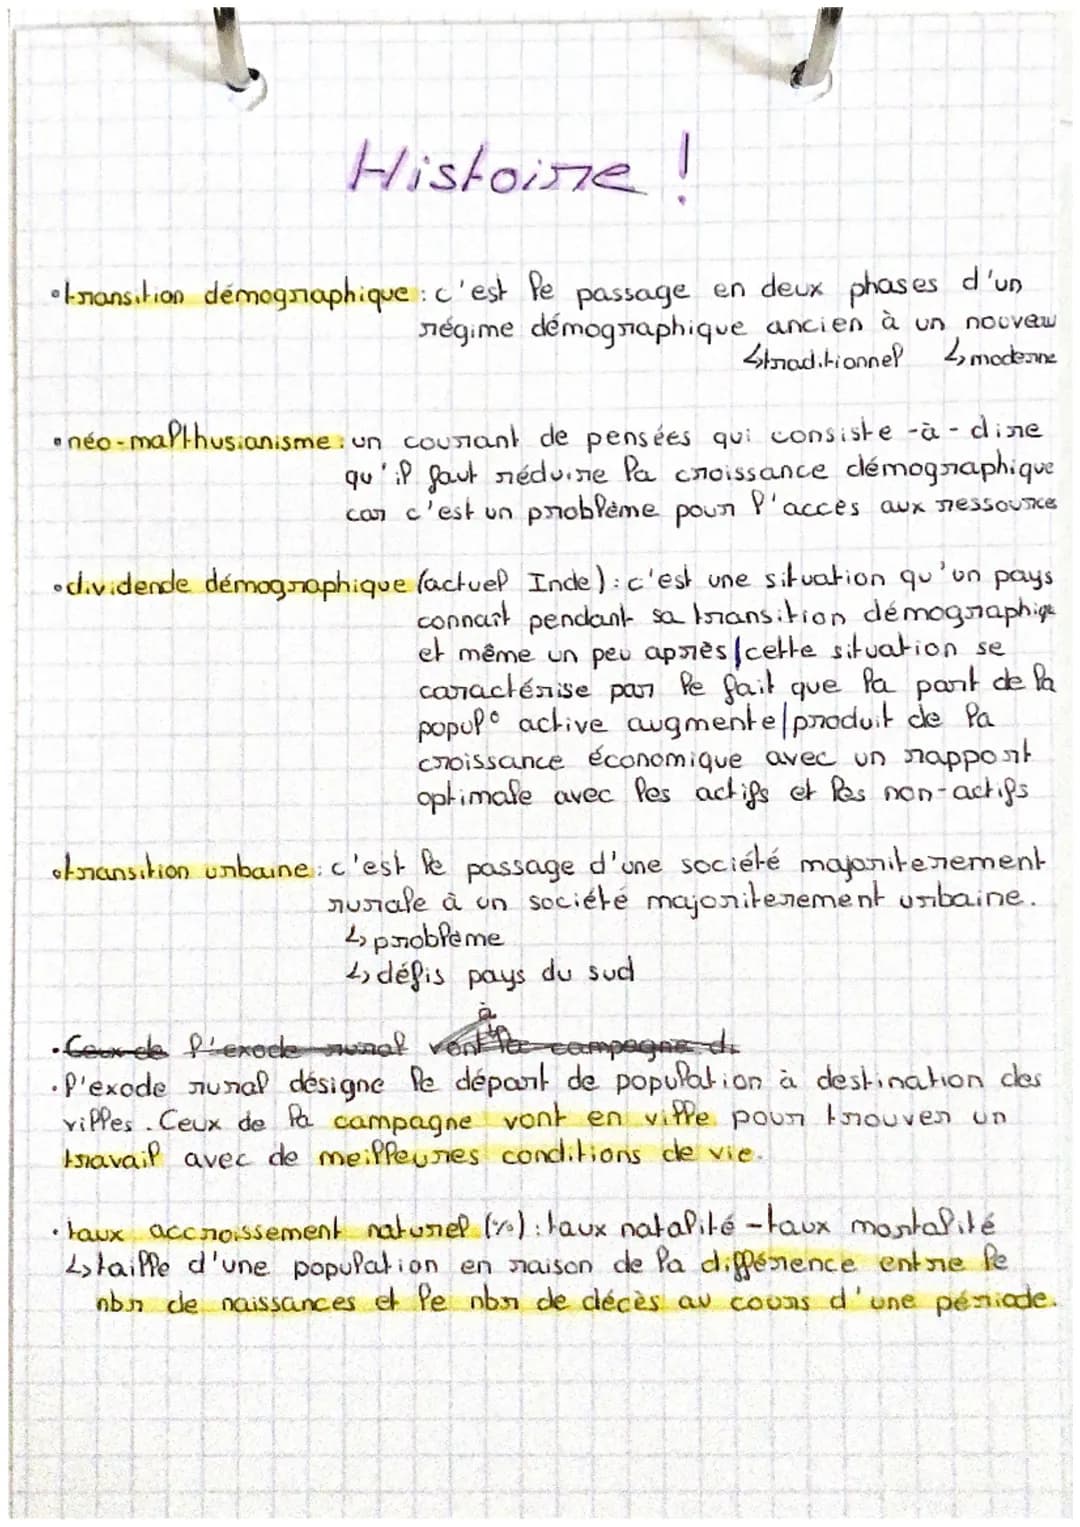 Histoire !
• transition démographique : c'est le passage en deux phases d'un
régime démographique ancien à un nouveau
↳ traditionnel ↳ moderne
• néo-malthusianisme : un courant de pensées qui consiste -à- dire
qu'il faut réduire la croissance démographique
car c'est un problème pour l'accès aux ressources
• dividende démographique (actuel Inde) : c'est une situation qu'un pays
connait pendant sa transition démographique
et même un peu après | cette situation se
caractérise par le fait que la part de la
popul° active augmente | produit de la
croissance économique avec un rapport
optimale avec les actifs et les non-actifs
• transition urbaine : c'est le passage d'une société majoriterement
rurale à un société majoriterement urbaine.
↳ problème
↳ défis pays du sud
à
• Ceux de l'exode rural vont la campagne d
• l'exode rural désigne le départ de population à destination des
villes. Ceux de la campagne vont en ville pour trouver un
travail avec de meilleures conditions de vie.
• taux accroissement naturel (%) : taux natalité - taux mortalité
↳ taille d'une population en raison de la différence entre le
nbr de naissances et le nbr de décès au cours d'une période.